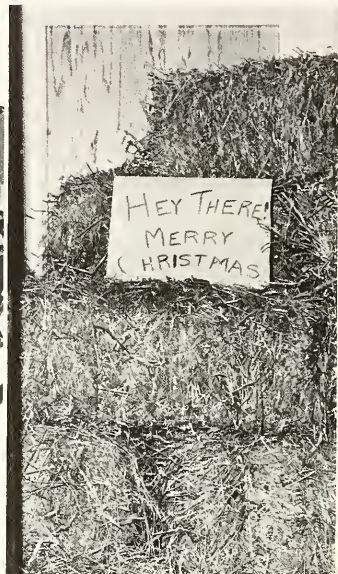 HEY THERE!
MERRY
CHRISTMAS